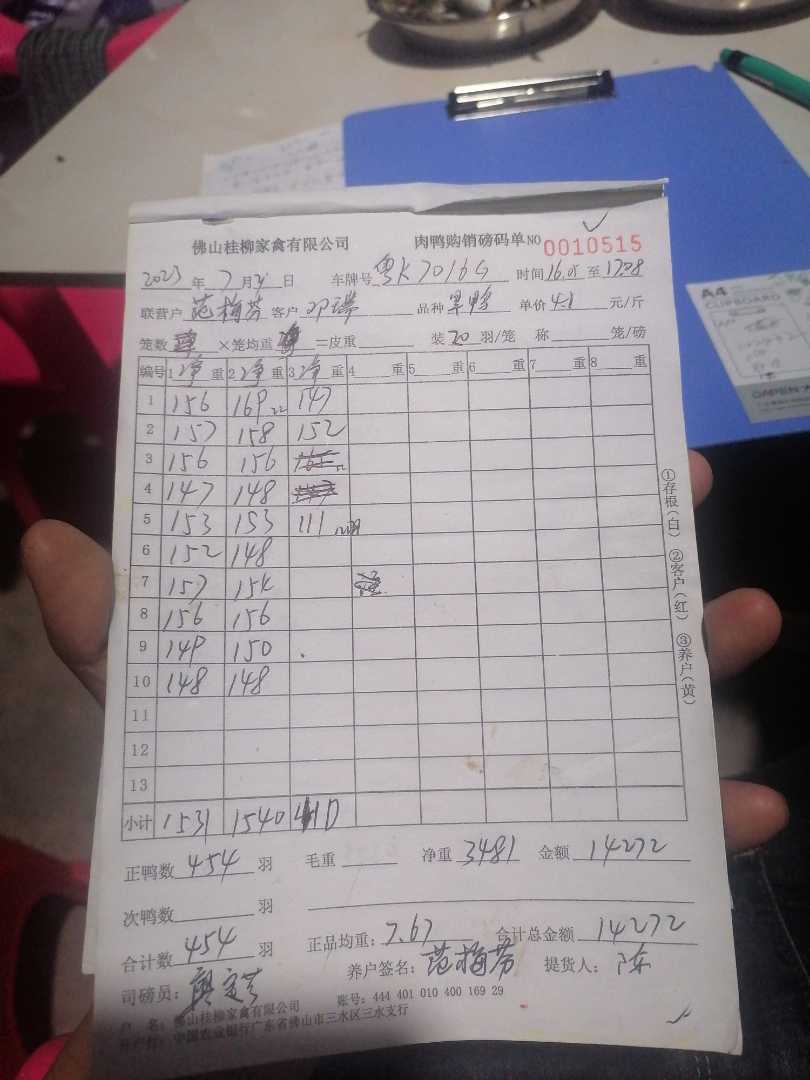 佛山桂柳家禽有限公司 肉鸭购销磅码单 NO 0010515
2023 年 7 月 日 车牌号 粤K7016G 时间 16.05 至 17.08
联营户 范梅芬 客户 邓瑞 品种 旱鸭 单价 4.1 元/斤
笼数 ×笼均重 =皮重 装 20 羽/笼 称 笼/磅
编号 1 净 重 2 净 重 3 净 重 4 重 5 重 6 重 7 重 8 重
1 156 169 22 147
2 157 158 152
3 156 156
4 147 148
5 153 153 111
6 152 148
7 157 154
8 156 156
9 149 150
10 148 148
11
12
13
小计 1531 1540 410
①存根(白) ②客户(红) ③养户(黄)
正鸭数 454 羽 毛重 净重 3481 金额 14272
次鸭数 羽
合计数 454 羽 正品均重: 7.67 合计总金额 14272
司磅员: 养户签名: 范梅芬 提货人: 陈
户 名: 佛山桂柳家禽有限公司 账号: 444 401 010 400 169 29
开户行: 中国农业银行广东省佛山市三水区三水支行
A4
CLIPBOARD